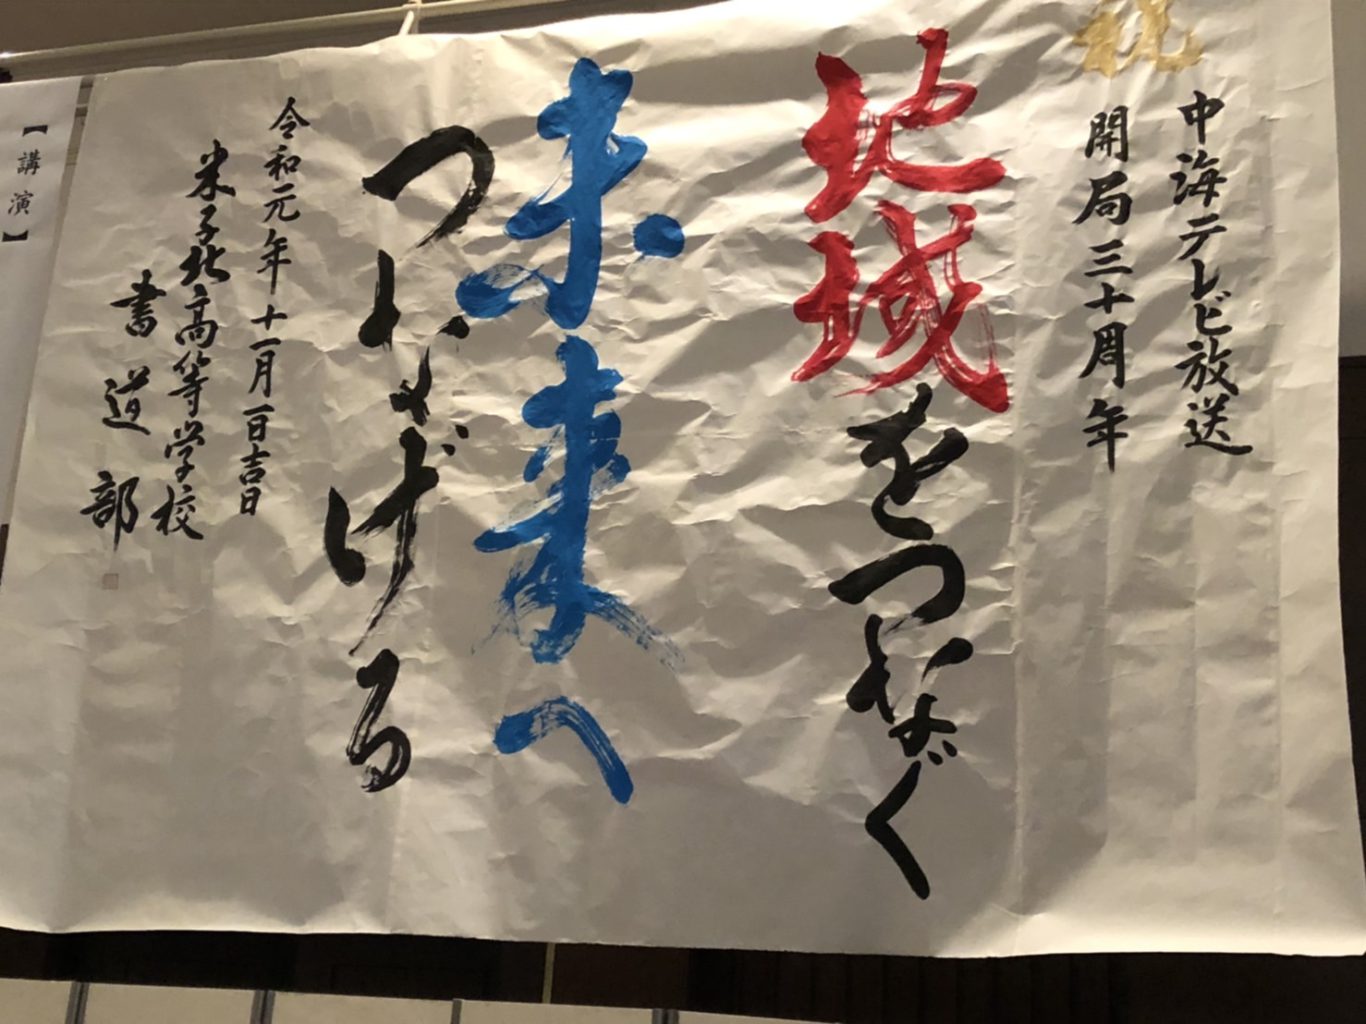 祝
中海テレビ放送
開局三十周年
地域をつなぐ
未来へ
つなげる
令和元年十一月一日吉日
米子北高等学校
書道部
【講演】